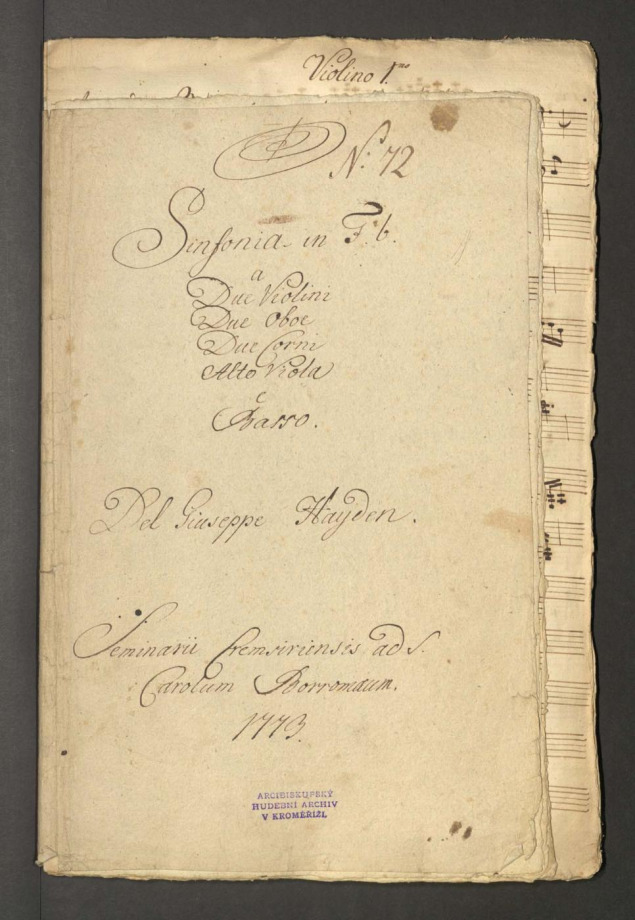 Violino 1.mo
No: 72
Sinfonia in F. b.
a
Due Violini
Due Oboe
Due Corni
Alto Viola
e
Basso.
Del Giuseppe Hayden.
Seminarii Cremsiriensis ad S.
Carolum Borromæum.
1773.
ARCIBISKUPSKÝ
HUDEBNÍ ARCHIV
V KROMĚŘÍŽI.